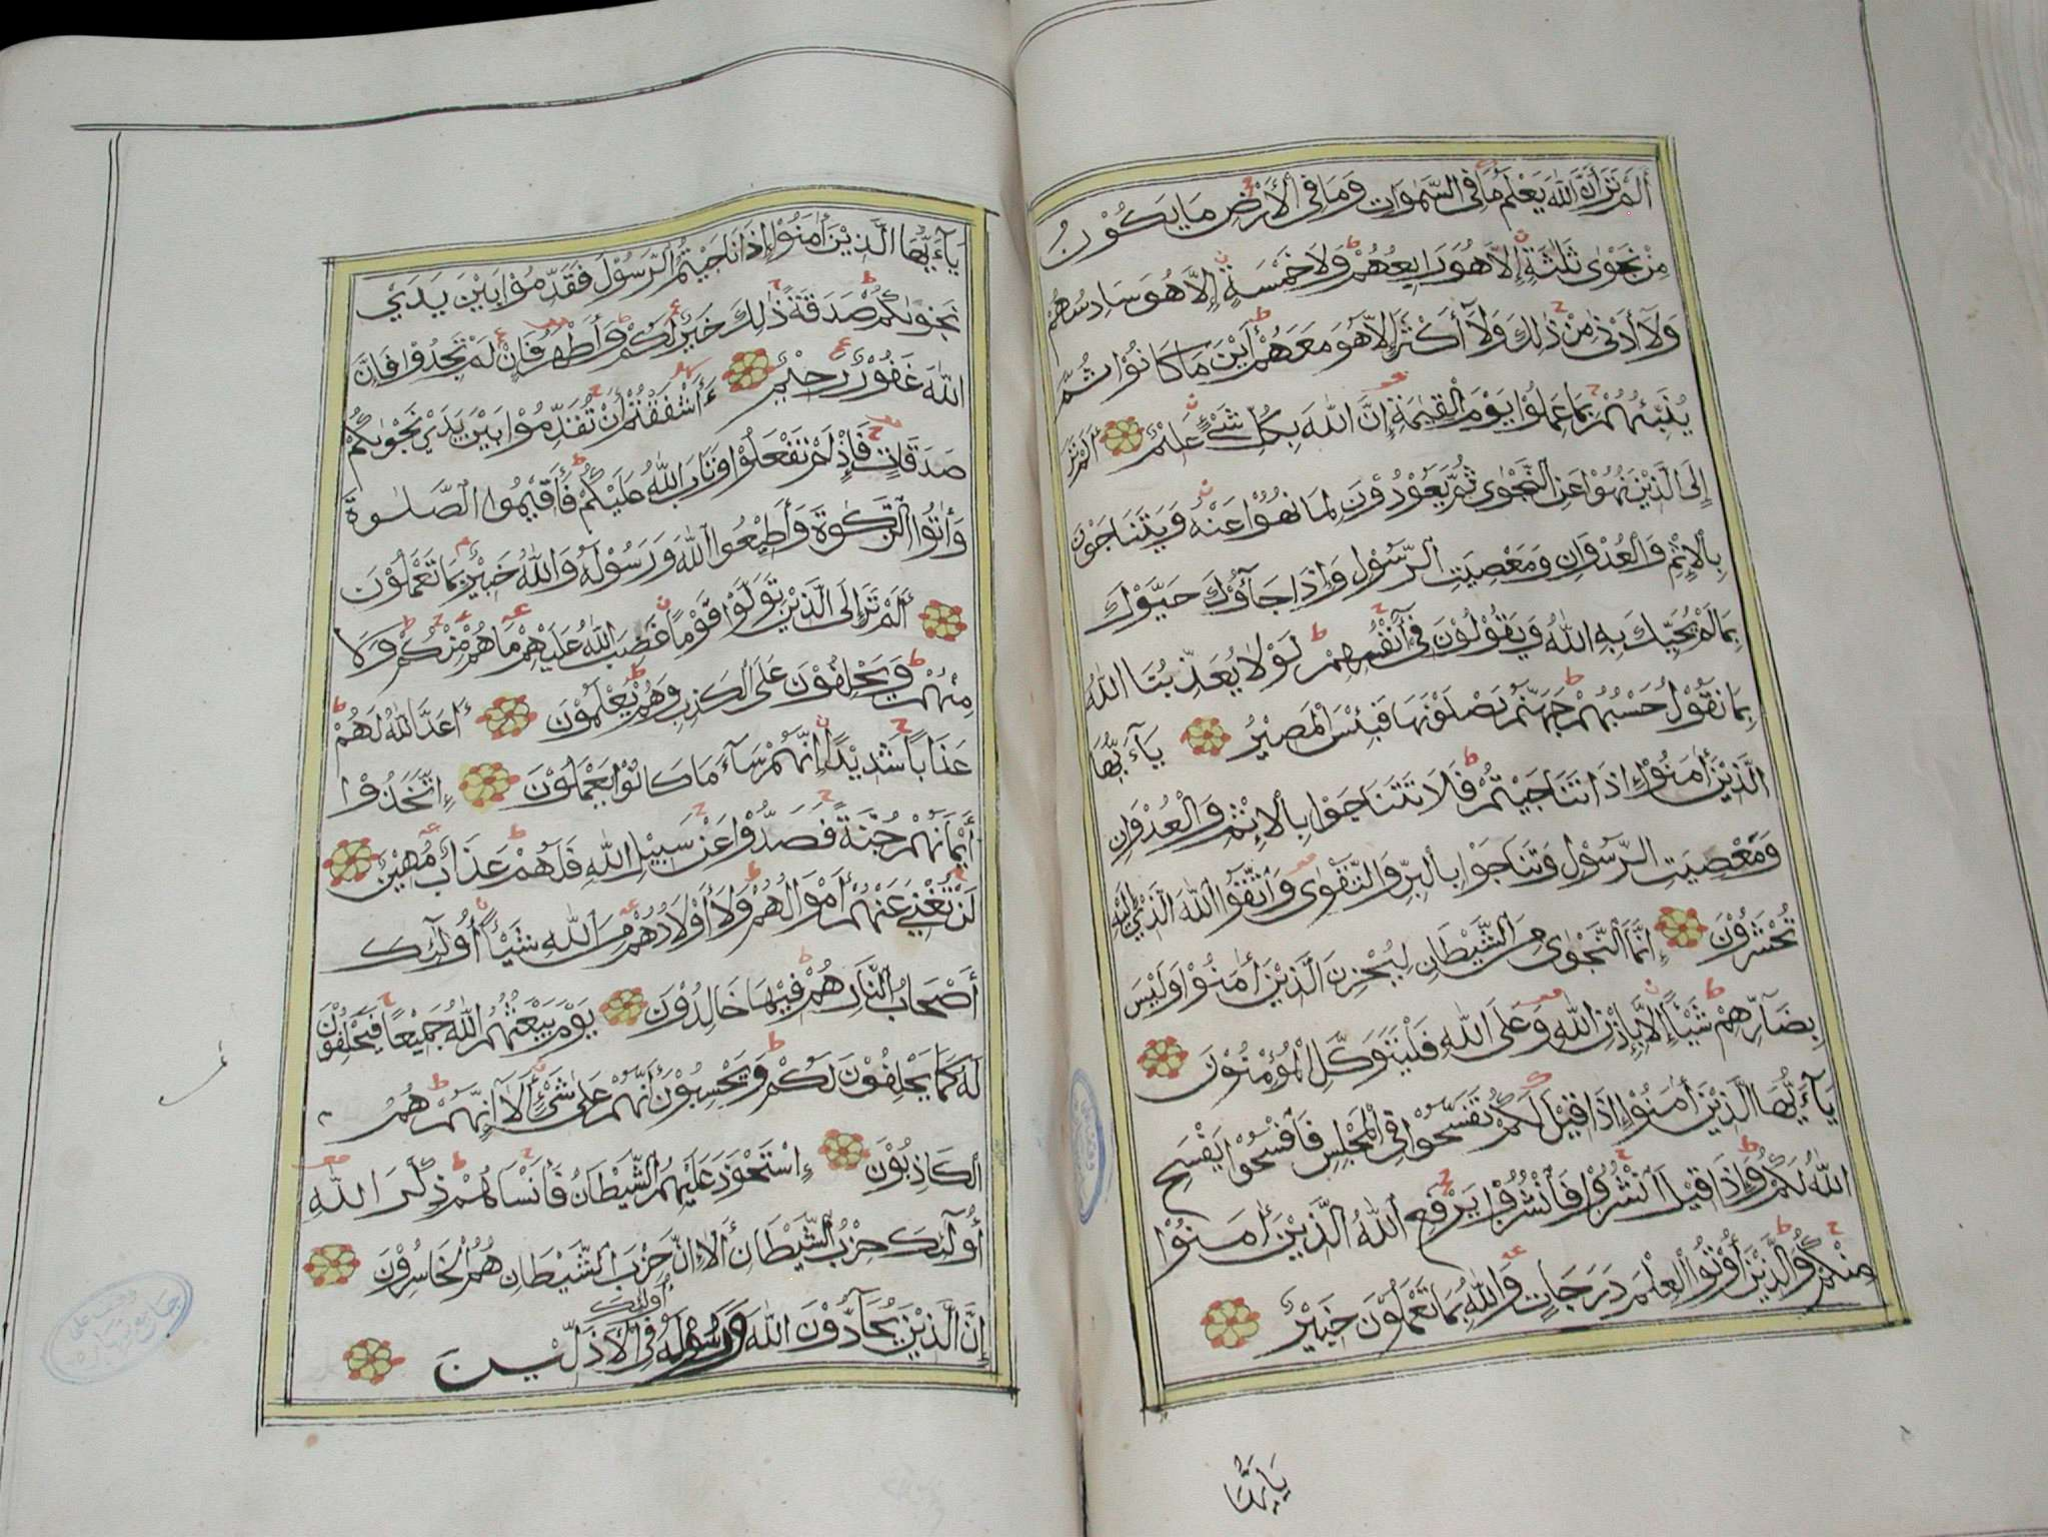 أَلَمْ تَرَ أَنَّ اللّٰهَ يَعْلَمُ مَا فِي السَّمٰوَاتِ وَمَا فِي الْأَرْضِ مَا يَكُوْنُ
مِنْ نَجْوٰى ثَلٰثَةٍ إِلَّا هُوَ رَابِعُهُمْ وَلَا خَمْسَةٍ إِلَّا هُوَ سَادِسُهُمْ
وَلَآ أَدْنٰى مِنْ ذٰلِكَ وَلَآ أَكْثَرَ إِلَّا هُوَ مَعَهُمْ أَيْنَ مَا كَانُوْا ثُمَّ
يُنَبِّئُهُمْ بِمَا عَمِلُوْا يَوْمَ الْقِيٰمَةِ إِنَّ اللّٰهَ بِكُلِّ شَيْءٍ عَلِيْمٌ أَلَمْ تَرَ
إِلَى الَّذِيْنَ نُهُوْا عَنِ النَّجْوٰى ثُمَّ يَعُوْدُوْنَ لِمَا نُهُوْا عَنْهُ وَيَتَنَاجَوْنَ
بِالْإِثْمِ وَالْعُدْوَانِ وَمَعْصِيَتِ الرَّسُوْلِ وَإِذَا جَآؤُكَ حَيَّوْكَ
بِمَا لَمْ يُحَيِّكَ بِهِ اللّٰهُ وَيَقُوْلُوْنَ فِيْ أَنْفُسِهِمْ لَوْلَا يُعَذِّبُنَا اللّٰهُ
بِمَا نَقُوْلُ حَسْبُهُمْ جَهَنَّمُ يَصْلَوْنَهَا فَبِئْسَ الْمَصِيْرُ يَآءَيُّهَا
الَّذِيْنَ أٰمَنُوْا إِذَا تَنَاجَيْتُمْ فَلَا تَتَنَاجَوْا بِالْإِثْمِ وَالْعُدْوَانِ
وَمَعْصِيَتِ الرَّسُوْلِ وَتَنَاجَوْا بِالْبِرِّ وَالتَّقْوٰى وَاتَّقُوا اللّٰهَ الَّذِيْ إِلَيْهِ
تُحْشَرُوْنَ إِنَّمَا النَّجْوٰى مِنَ الشَّيْطَانِ لِيَحْزُنَ الَّذِيْنَ أٰمَنُوْا وَلَيْسَ
بِضَآرِّهِمْ شَيْأً إِلَّا بِإِذْنِ اللّٰهِ وَعَلَى اللّٰهِ فَلْيَتَوَكَّلِ الْمُؤْمِنُوْنَ
يَآءَيُّهَا الَّذِيْنَ أٰمَنُوْا إِذَا قِيْلَ لَكُمْ تَفَسَّحُوْا فِي الْمَجْلِسِ فَافْسَحُوْا يَفْسَحِ
اللّٰهُ لَكُمْ وَإِذَا قِيْلَ انْشُزُوْا فَانْشُزُوْا يَرْفَعِ اللّٰهُ الَّذِيْنَ أٰمَنُوْا
مِنْكُمْ وَالَّذِيْنَ أُوْتُوا الْعِلْمَ دَرَجَاتٍ وَاللّٰهُ بِمَا تَعْمَلُوْنَ خَبِيْرٌ
يَاءَيُّهَا
يَآءَيُّهَا الَّذِيْنَ أٰمَنُوْا إِذَا نَاجَيْتُمُ الرَّسُوْلَ فَقَدِّمُوْا بَيْنَ يَدَيْ
نَجْوٰىكُمْ صَدَقَةً ذٰلِكَ خَيْرٌ لَكُمْ وَأَطْهَرُ فَإِنْ لَمْ تَجِدُوْا فَإِنَّ
اللّٰهَ غَفُوْرٌ رَحِيْمٌ ءَأَشْفَقْتُمْ أَنْ تُقَدِّمُوْا بَيْنَ يَدَيْ نَجْوٰىكُمْ
صَدَقَاتٍ فَإِذْ لَمْ تَفْعَلُوْا وَتَابَ اللّٰهُ عَلَيْكُمْ فَأَقِيْمُوا الصَّلٰوةَ
وَأٰتُوا الزَّكٰوةَ وَأَطِيْعُوا اللّٰهَ وَرَسُوْلَهُ وَاللّٰهُ خَبِيْرٌ بِمَا تَعْمَلُوْنَ
أَلَمْ تَرَ إِلَى الَّذِيْنَ تَوَلَّوْا قَوْمًا غَضِبَ اللّٰهُ عَلَيْهِمْ مَا هُمْ مِنْكُمْ وَلَا
مِنْهُمْ وَيَحْلِفُوْنَ عَلَى الْكَذِبِ وَهُمْ يَعْلَمُوْنَ أَعَدَّ اللّٰهُ لَهُمْ
عَذَابًا شَدِيْدًا إِنَّهُمْ سَآءَ مَا كَانُوْا يَعْمَلُوْنَ إِتَّخَذُوْا
أَيْمَانَهُمْ جُنَّةً فَصَدُّوْا عَنْ سَبِيْلِ اللّٰهِ فَلَهُمْ عَذَابٌ مُهِيْنٌ
لَنْ تُغْنِيَ عَنْهُمْ أَمْوَالُهُمْ وَلَا أَوْلَادُهُمْ مِنَ اللّٰهِ شَيْأً أُولٰئِكَ
أَصْحَابُ النَّارِ هُمْ فِيْهَا خَالِدُوْنَ يَوْمَ يَبْعَثُهُمُ اللّٰهُ جَمِيْعًا فَيَحْلِفُوْنَ
لَهُ كَمَا يَحْلِفُوْنَ لَكُمْ وَيَحْسَبُوْنَ أَنَّهُمْ عَلٰى شَيْءٍ أَلَا إِنَّهُمْ هُمُ
الْكَاذِبُوْنَ إِسْتَحْوَذَ عَلَيْهِمُ الشَّيْطَانُ فَأَنْسَاهُمْ ذِكْرَ اللّٰهِ
أُولٰئِكَ حِزْبُ الشَّيْطَانِ أَلَا إِنَّ حِزْبَ الشَّيْطَانِ هُمُ الْخَاسِرُوْنَ
إِنَّ الَّذِيْنَ يُحَآدُّوْنَ اللّٰهَ وَرَسُوْلَهُ أُولٰئِكَ فِي الْأَذَلِّيْنَ